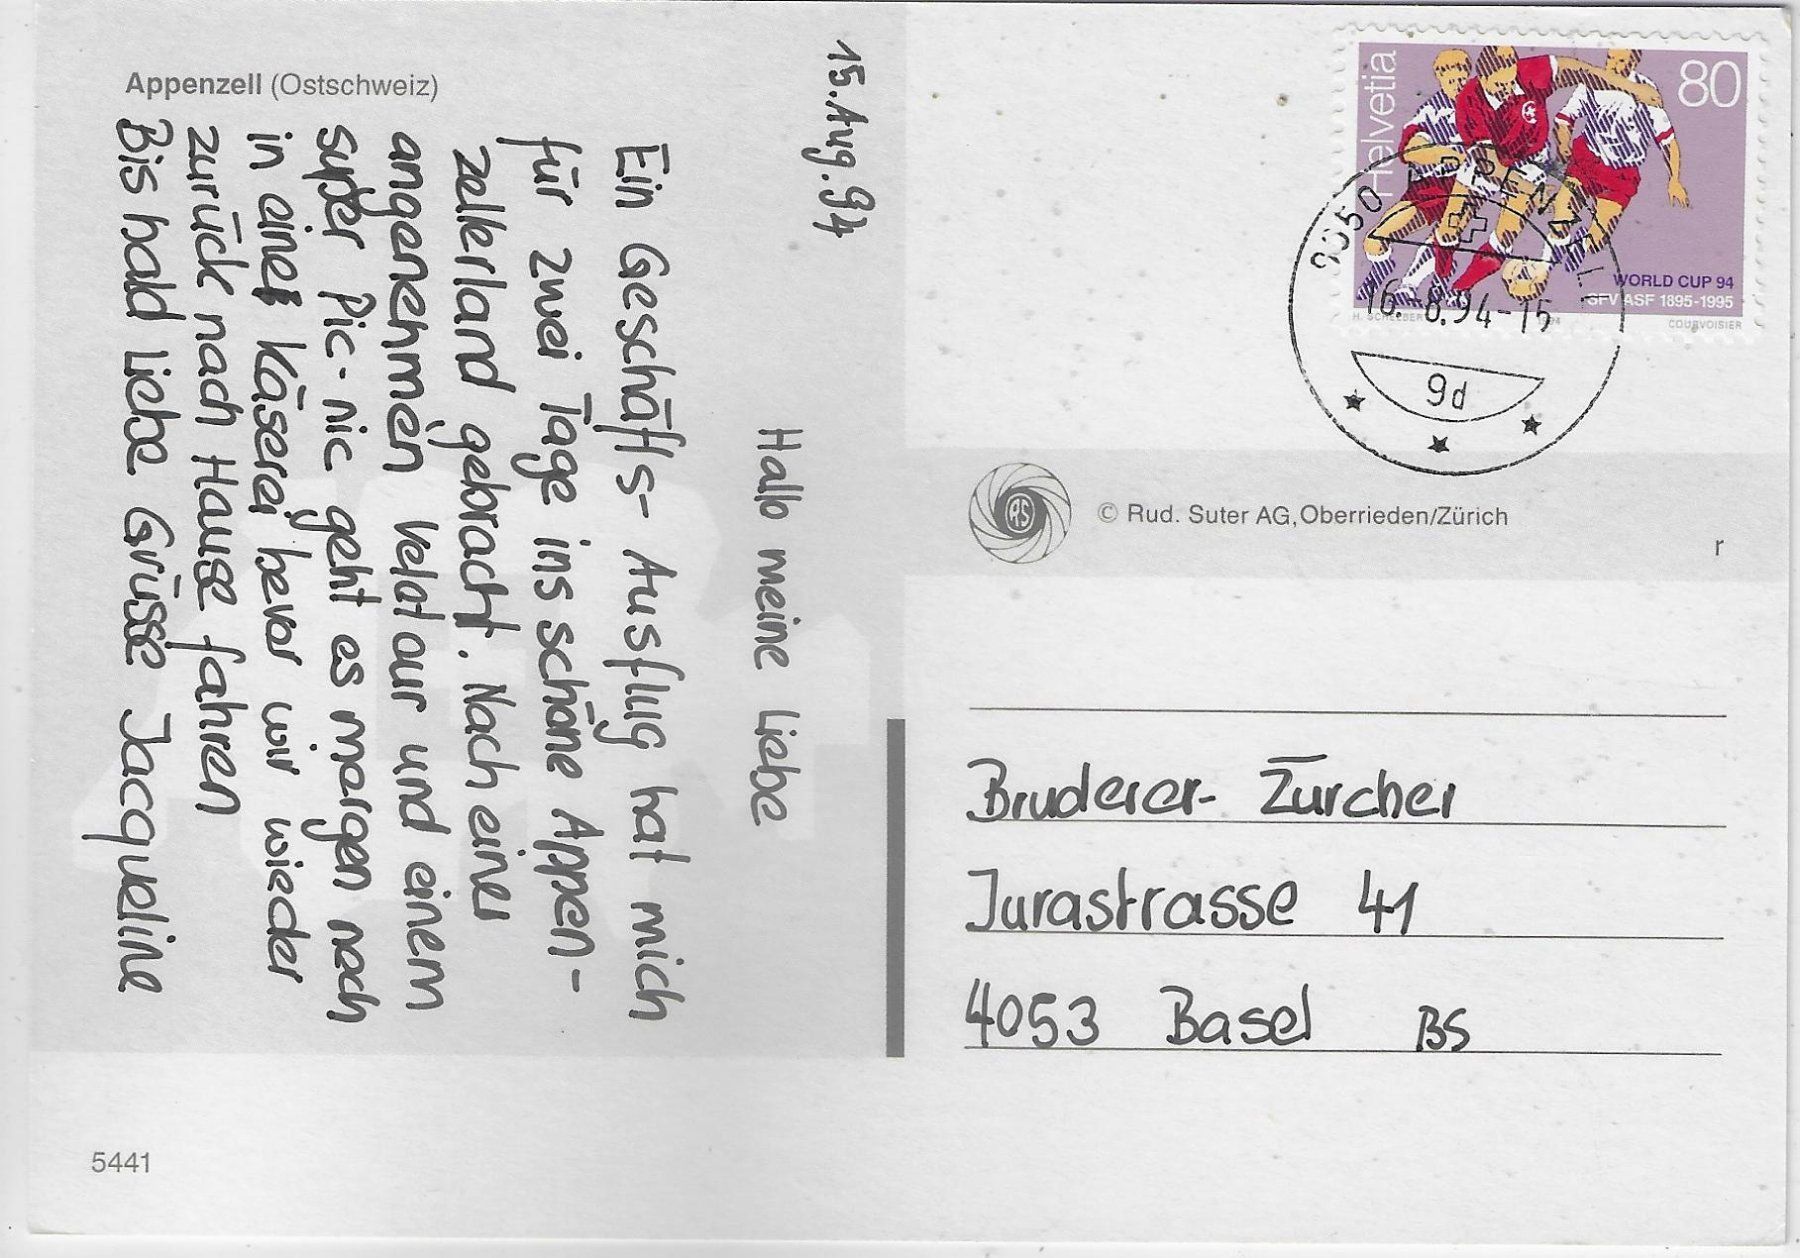 Appenzell (Ostschweiz)
15. Aug. 94
Hallo meine Liebe
Ein Geschäfts- Ausflug hat mich
für zwei Tage ins schöne Appen-
zellerland gebracht. Nach einer
angenehmen Velotour und einem
super Pic-nic geht es morgen noch
in eine Käserei bevor wir wieder
zurück nach Hause fahren
Bis bald Liebe Grüsse Jacqueline
5441
Helvetia
80
WORLD CUP 94
SFV ASF 1895-1995
COURVOISIER
9050 APPENZELL
16.-8.94-15
9d
RS
© Rud. Suter AG, Oberrieden/Zürich
r
Bruderer- Zürcher
Jurastrasse 41
4053 Basel BS